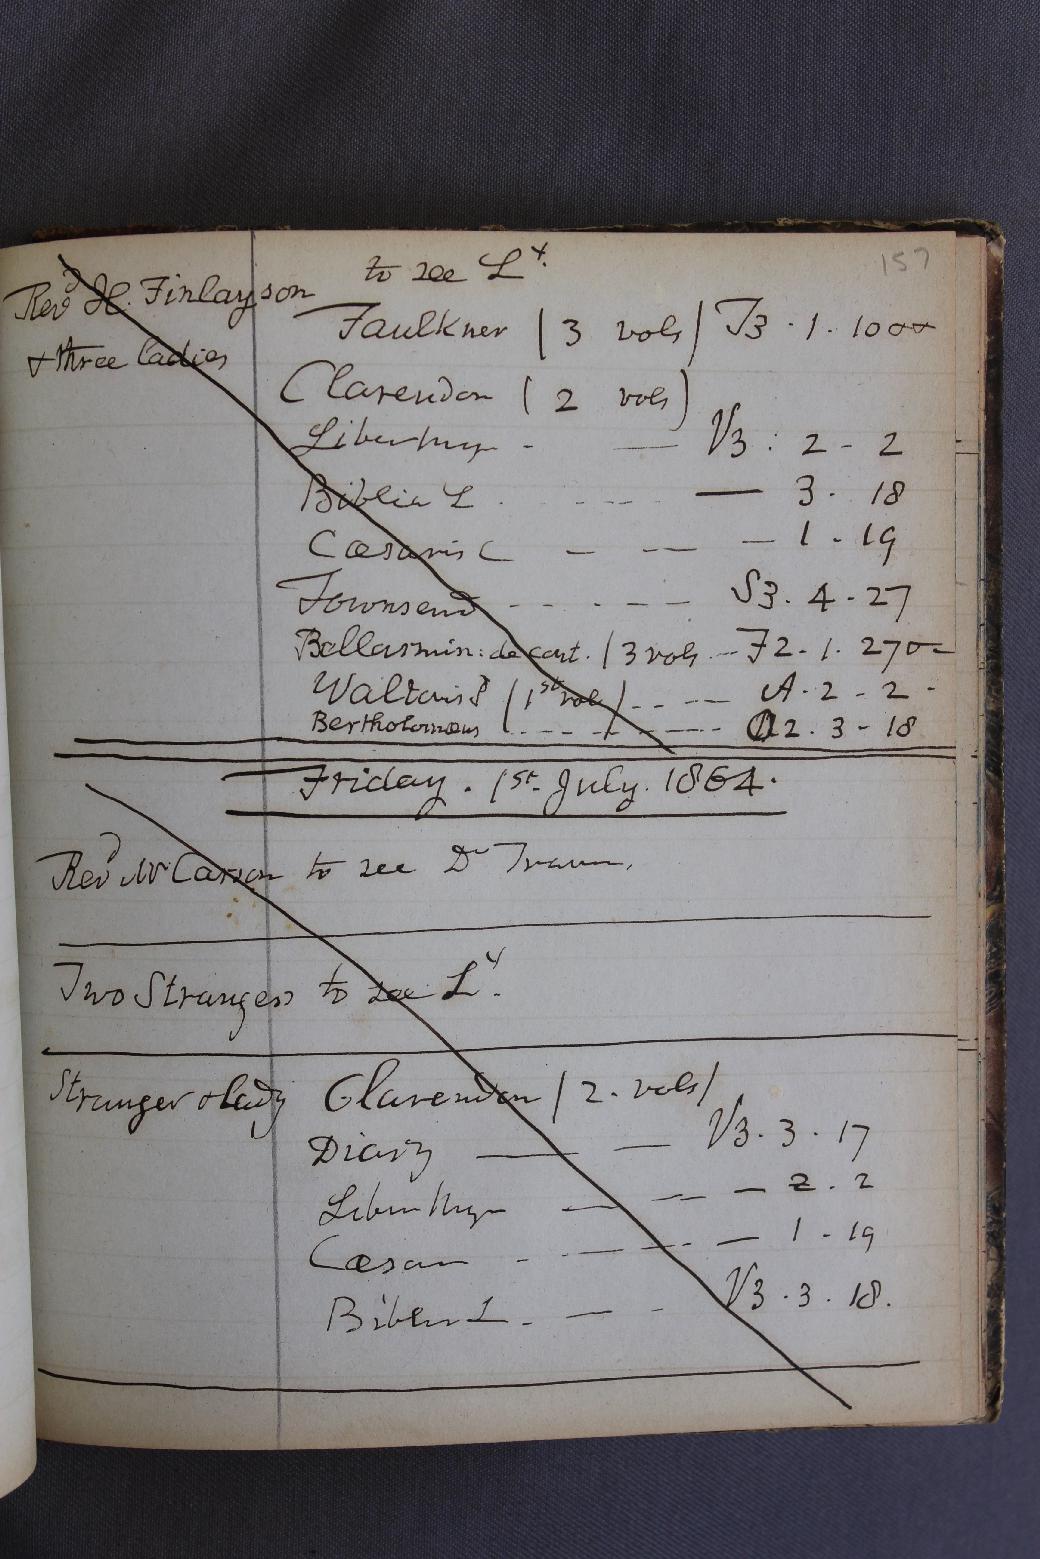 157
to see L^y.
Rev^d H. Finlayson
Faulkner (3 vols) T3 . 1 . 10
& three ladies
Clarendon (2 vols)
Liber Hym - — V3 : 2 - 2
Biblia L . - - - — 3 . 18
Cæsaris C — — — 1 . 19
Townsend - - - - - S3 . 4 . 27
Bellarmin: de cont. (3 vols - F2 . 1 . 27
Waltoni P (1st vol) - - - - A . 2 - 2 -
Bertholomæus - - - - - - - Q2 . 3 - 18
Friday . 1st July . 1864 .
Rev^d Mr Carson to see D^r Travers.
Two Strangers to see L^y.
Stranger & lady Clarendon (2 . vols)
Diary — — V3 . 3 . 17
Liber Hym — — — 2 . 2
Cæsar - - - - — 1 - 19
Biblia L - — - V3 . 3 . 18 .